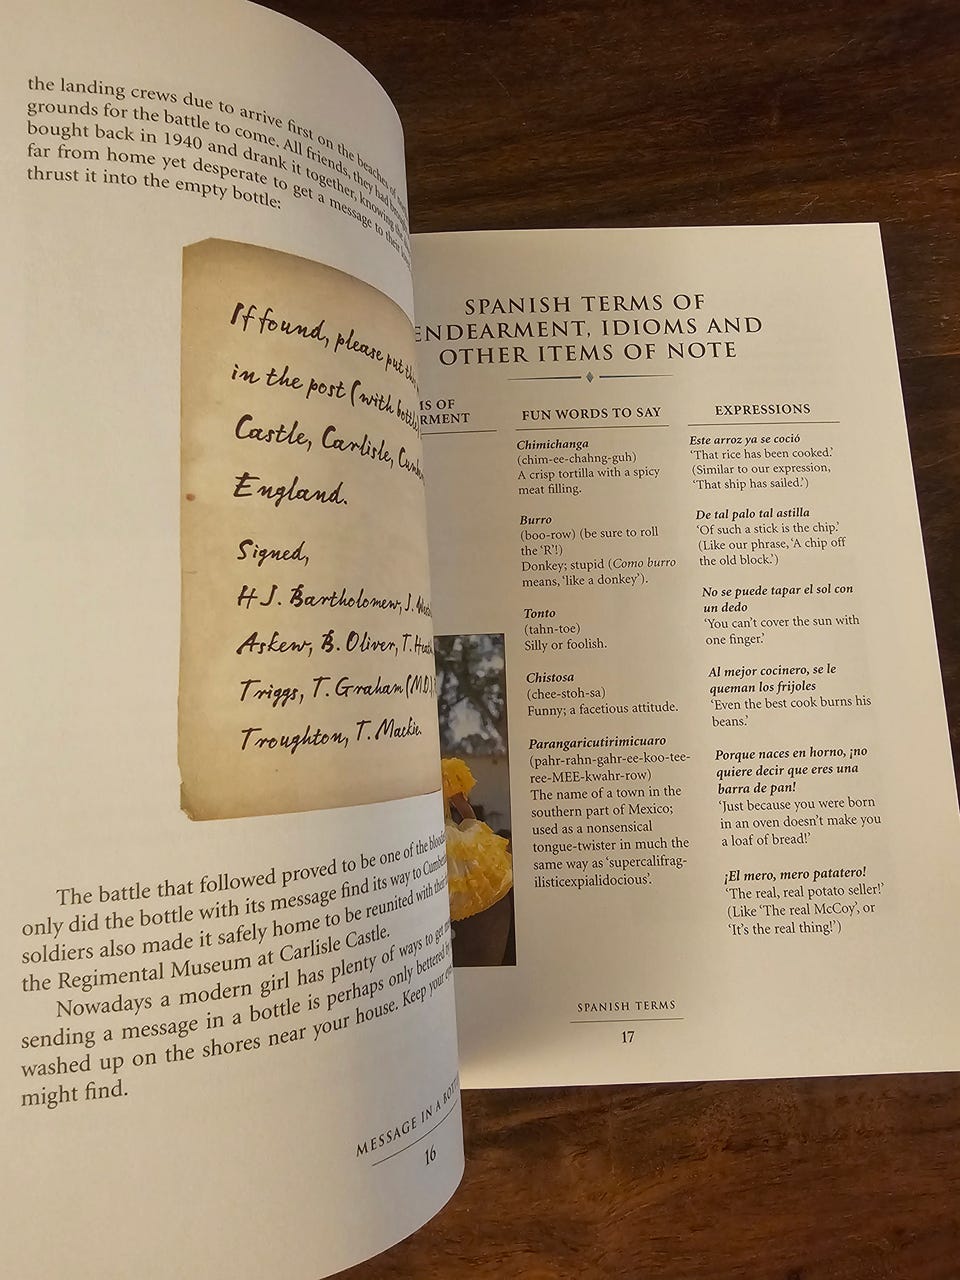 the landing crews due to arrive first on the beaches of
grounds for the battle to come. All friends, they had
bought back in 1940 and drank it together, knowing the
far from home yet desperate to get a message to their
thrust it into the empty bottle:
If found, please put
in the post (with bottle)
Castle, Carlisle,
England.
Signed,
H J. Bartholomew, J.
Askew, B. Oliver, T.
Triggs, T. Graham (M.D.),
Troughton, T. Mackie.
The battle that followed proved to be one of the
only did the bottle with its message find its way to
soldiers also made it safely home to be reunited with
the Regimental Museum at Carlisle Castle.
Nowadays a modern girl has plenty of ways to get
sending a message in a bottle is perhaps only bettered
washed up on the shores near your house. Keep your
might find.
MESSAGE IN A
16
SPANISH TERMS OF
ENDEARMENT, IDIOMS AND
OTHER ITEMS OF NOTE
OF
FUN WORDS TO SAY
Chimichanga
(chim-ee-chahng-guh)
A crisp tortilla with a spicy
meat filling.
Burro
(boo-row) (be sure to roll
the 'R'!)
Donkey; stupid (Como burro
means, 'like a donkey').
Tonto
(tahn-toe)
Silly or foolish.
Chistosa
(chee-stoh-sa)
Funny; a facetious attitude.
Parangaricutirimicuaro
(pahr-rahn-gahr-ee-koo-tee-
ree-MEE-kwahr-row)
The name of a town in the
southern part of Mexico;
used as a nonsensical
tongue-twister in much the
same way as 'supercalifrag-
ilisticexpialidocious'.
EXPRESSIONS
Este arroz ya se coció
'That rice has been cooked.'
(Similar to our expression,
'That ship has sailed.')
De tal palo tal astilla
'Of such a stick is the chip.'
(Like our phrase, 'A chip off
the old block.')
No se puede tapar el sol con
un dedo
'You can't cover the sun with
one finger.'
Al mejor cocinero, se le
queman los frijoles
'Even the best cook burns his
beans.'
Porque naces en horno, ¡no
quiere decir que eres una
barra de pan!
'Just because you were born
in an oven doesn't make you
a loaf of bread!'
¡El mero, mero patatero!
'The real, real potato seller!'
(Like 'The real McCoy', or
'It's the real thing!')
SPANISH TERMS
17